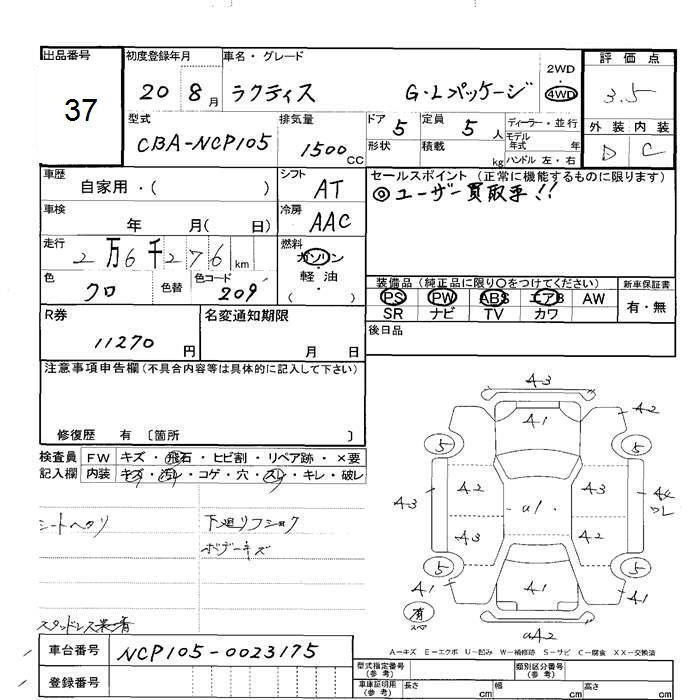 出品番号 初度登録年月 車名・グレード 評価点
37 20 8月 ラクティス G・Lパッケージ 2WD 4WD 3.5
型式 排気量 ドア 定員 ディーラー・並行 外装 内装
CBA-NCP105 1500CC 5 5人 モデル年式 年 D C
形状 積載 kg ハンドル 左・右
車歴 シフト セールスポイント(正常に機能するものに限ります)
自家用・( ) AT ◎ユーザー買取車!!
車検 冷房
年 月( 日) AAC
走行 燃料
2万6千276km ガソリン・軽油・( )
色 色替 色コード
クロ 209
装備品(純正品に限り○をつけてください) 新車保証書
PS PW ABS エアB AW 有・無
SR ナビ TV カワ
R券 名変通知期限 後日品
11270円 月 日
注意事項申告欄(不具合内容等は具体的に記入して下さい)
修復歴 有〔箇所 〕
検査員 FW キズ・飛石・ヒビ割・リペア跡・×要
記入欄 内装 キズ・汚れ・コゲ・穴・スレ・キレ・破レ
シートヘタリ 下廻リフショク
ボデーキズ
A3
A1 A2
5 5
A3 A2 A3 A4
u1
A3 A2
5 5
A1 A1 A1
有
スペア
uA2
A−キズ E−エクボ U−凹み W−補修跡 S−サビ C−腐食 XX−交換済
車台番号 NCP105-0023175
登録番号
型式指定番号(参考) 類別区分番号(参考)
車庫証明用(参考) 長さ cm 幅 cm 高さ cm